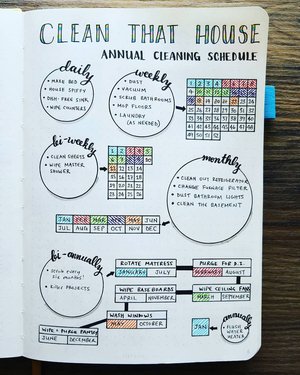 CLEAN THAT HOUSE
ANNUAL CLEANING SCHEDULE
daily
• MAKE BED
• HOUSE SPIFFY
• DISH-FREE SINK
• WIPE COUNTERS
weekly
• DUST
• VACUUM
• SCRUB BATHROOMS
• MOP FLOORS
• LAUNDRY
(AS NEEDED)
bi-weekly
• CLEAN SHEETS
• WIPE MASTER
SHOWER
monthly
• CLEAN OUT REFRIGERATOR
• CHANGE FURNACE FILTER
• DUST BATHROOM LIGHTS
• CLEAN THE BASEMENT
JAN FEB MAR APR MAY JUN
JUL AUG SEP OCT NOV DEC
bi-annually
• Scrub every
six months!
• KITER PROJECTS
ROTATE MATTRESS
JANUARY JULY
PURGE FOR D.I.
FEBRUARY AUGUST
WIPE BASEBOARDS
APRIL NOVEMBER
WIPE CEILING FANS
MARCH SEPTEMBER
WASH WINDOWS
MAY OCTOBER
WIPE + PURGE PANTRY
JUNE DECEMBER
JAN
annually
• FLUSH
WATER
HEATER